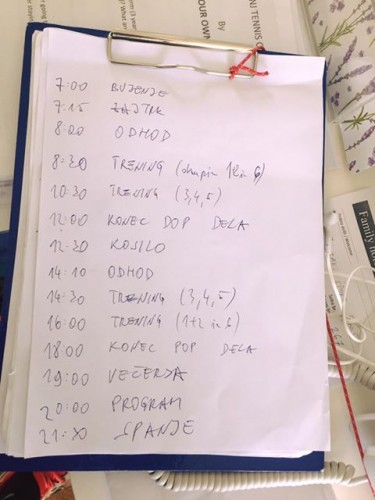 NJ TENNIS
By
OUR OWN
7:00 BUJENJE
7:15 ZAJTRK
8:00 ODHOD
8:30 TRENING (skupin 1,2 in 6)
10:30 TRENING (3,4,5)
12:00 KONEC DOP DELA
12:30 KOSILO
14:10 ODHOD
14:30 TRENING (3,4,5)
16:00 TRENING (1+2 in 6)
18:00 KONEC POP DELA
19:00 VEČERJA
20:00 PROGRAM
21:30 SPANJE
Family